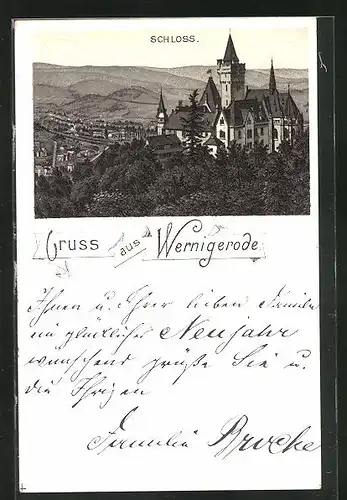 SCHLOSS.
Gruss aus Wernigerode
Ihnen u. Ihrer lieben Familie
ein glückliches Neujahr
wünschend grüße Sie u.
die Ihrigen
Familie Brocke